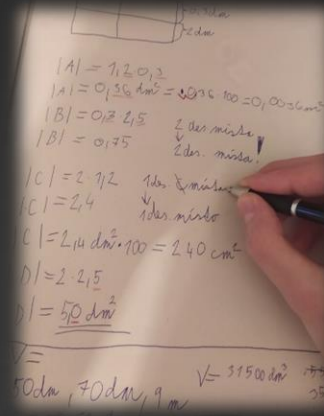 2 dm
|A| = 1,2·0,3
|A| = 0,36 dm² = 0,0036 m²
|B| = 0,7·2,5
|B| = 0,75
2 des. mista
↓
2 des. mista!
|C| = 2·1,2
|C| = 2,4
1 des.
↓
1 des. místo
C| = 2,4 dm²·100 = 240 cm²
D| = 2·2,5
D| = 5,0 dm²
V=
50dm, 70dm, 9 m
V= 31500 dm³